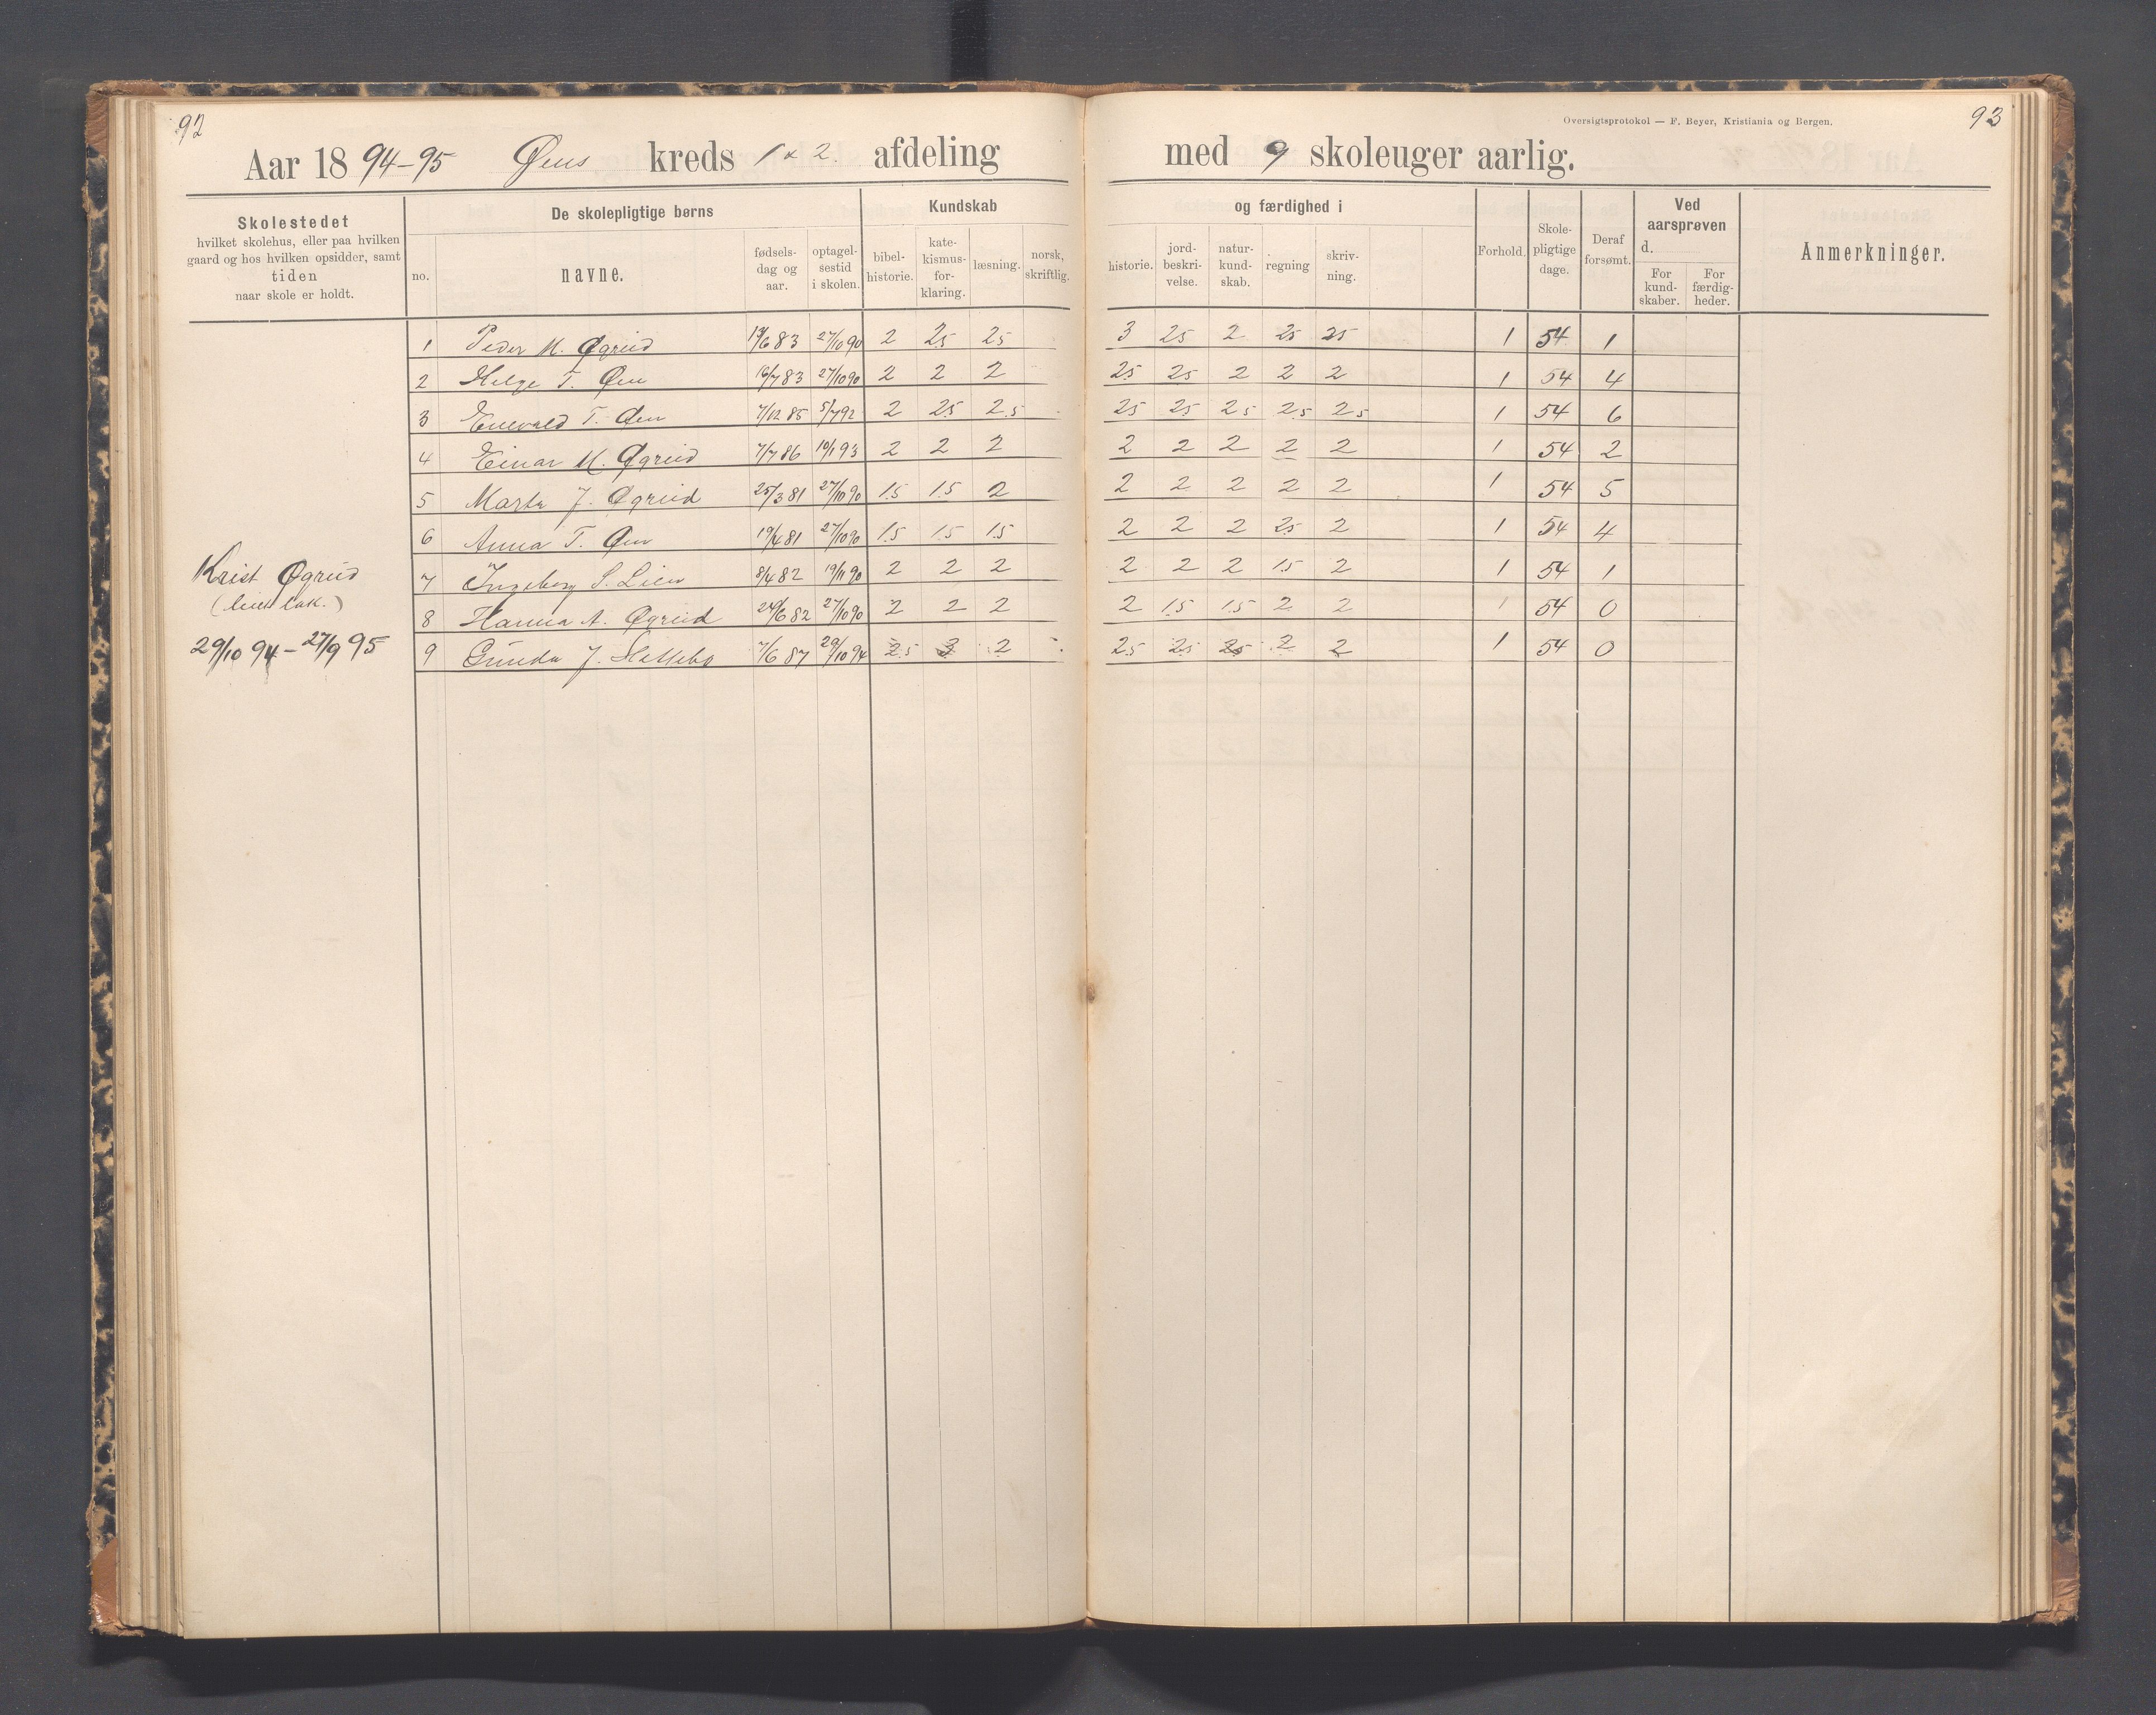 92
Aar 1894-95 Øens kreds 1 & 2. afdeling
Skolestedet
hvilket skolehus, eller paa hvilken
gaard og hos hvilken opsidder, samt
tiden
naar skole er holdt.
De skolepligtige børns
no.
navne.
fødsels-
dag og
aar.
optagel-
sestid
i skolen.
Kundskab
bibel-
historie.
kate-
kismus-
for-
klaring.
læsning.
norsk,
skriftlig.
Krist Øgreid
29/10 94-27/9 95
1 Peder M. Øgreid 83 27/10 90 2 25 25
2 Helge T. Øen 16/7 83 27/10 90 2 2 2
3 Enevald T. Øen 7/12 85 5/7 92 2 25 2.5
4 Einar M. Øgreid 7/7 86 10/1 93 2 2 2
5 Marta J. Øgreid 25/3 81 27/10 90 1.5 1.5 2
6 Anna T. Øen 19/4 81 27/10 90 1.5 1.5 1.5
7 Ingeborg S. Lien 8/4 82 19/11 90 2 2 2
8 Hanna A. Øgreid 24/6 82 27/10 90 2 2 2
9 Gunda J. 7/6 87 29/10 94 2.5 3 2
Oversigtsprotokol — F. Beyer, Kristiania og Bergen.
93
med 9 skoleuger aarlig.
og færdighed i
historie.
jord-
beskri-
velse.
natur-
kund-
skab.
regning
skriv-
ning.
Forhold.
Skole-
pligtige
dage.
Deraf
forsømt.
Ved
aarsprøven
d.
For
kund-
skaber.
For
færdig-
heder.
Anmerkninger.
3 25 2 25 25 1 54 1
25 25 2 2 2 1 54 4
25 25 25 25 25 1 54 6
2 2 2 2 2 1 54 2
2 2 2 2 2 1 54 5
2 2 2 25 2 1 54 4
2 2 2 15 2 1 54 1
2 1.5 1.5 2 2 1 54 0
2.5 25 25 2 2 1 54 0